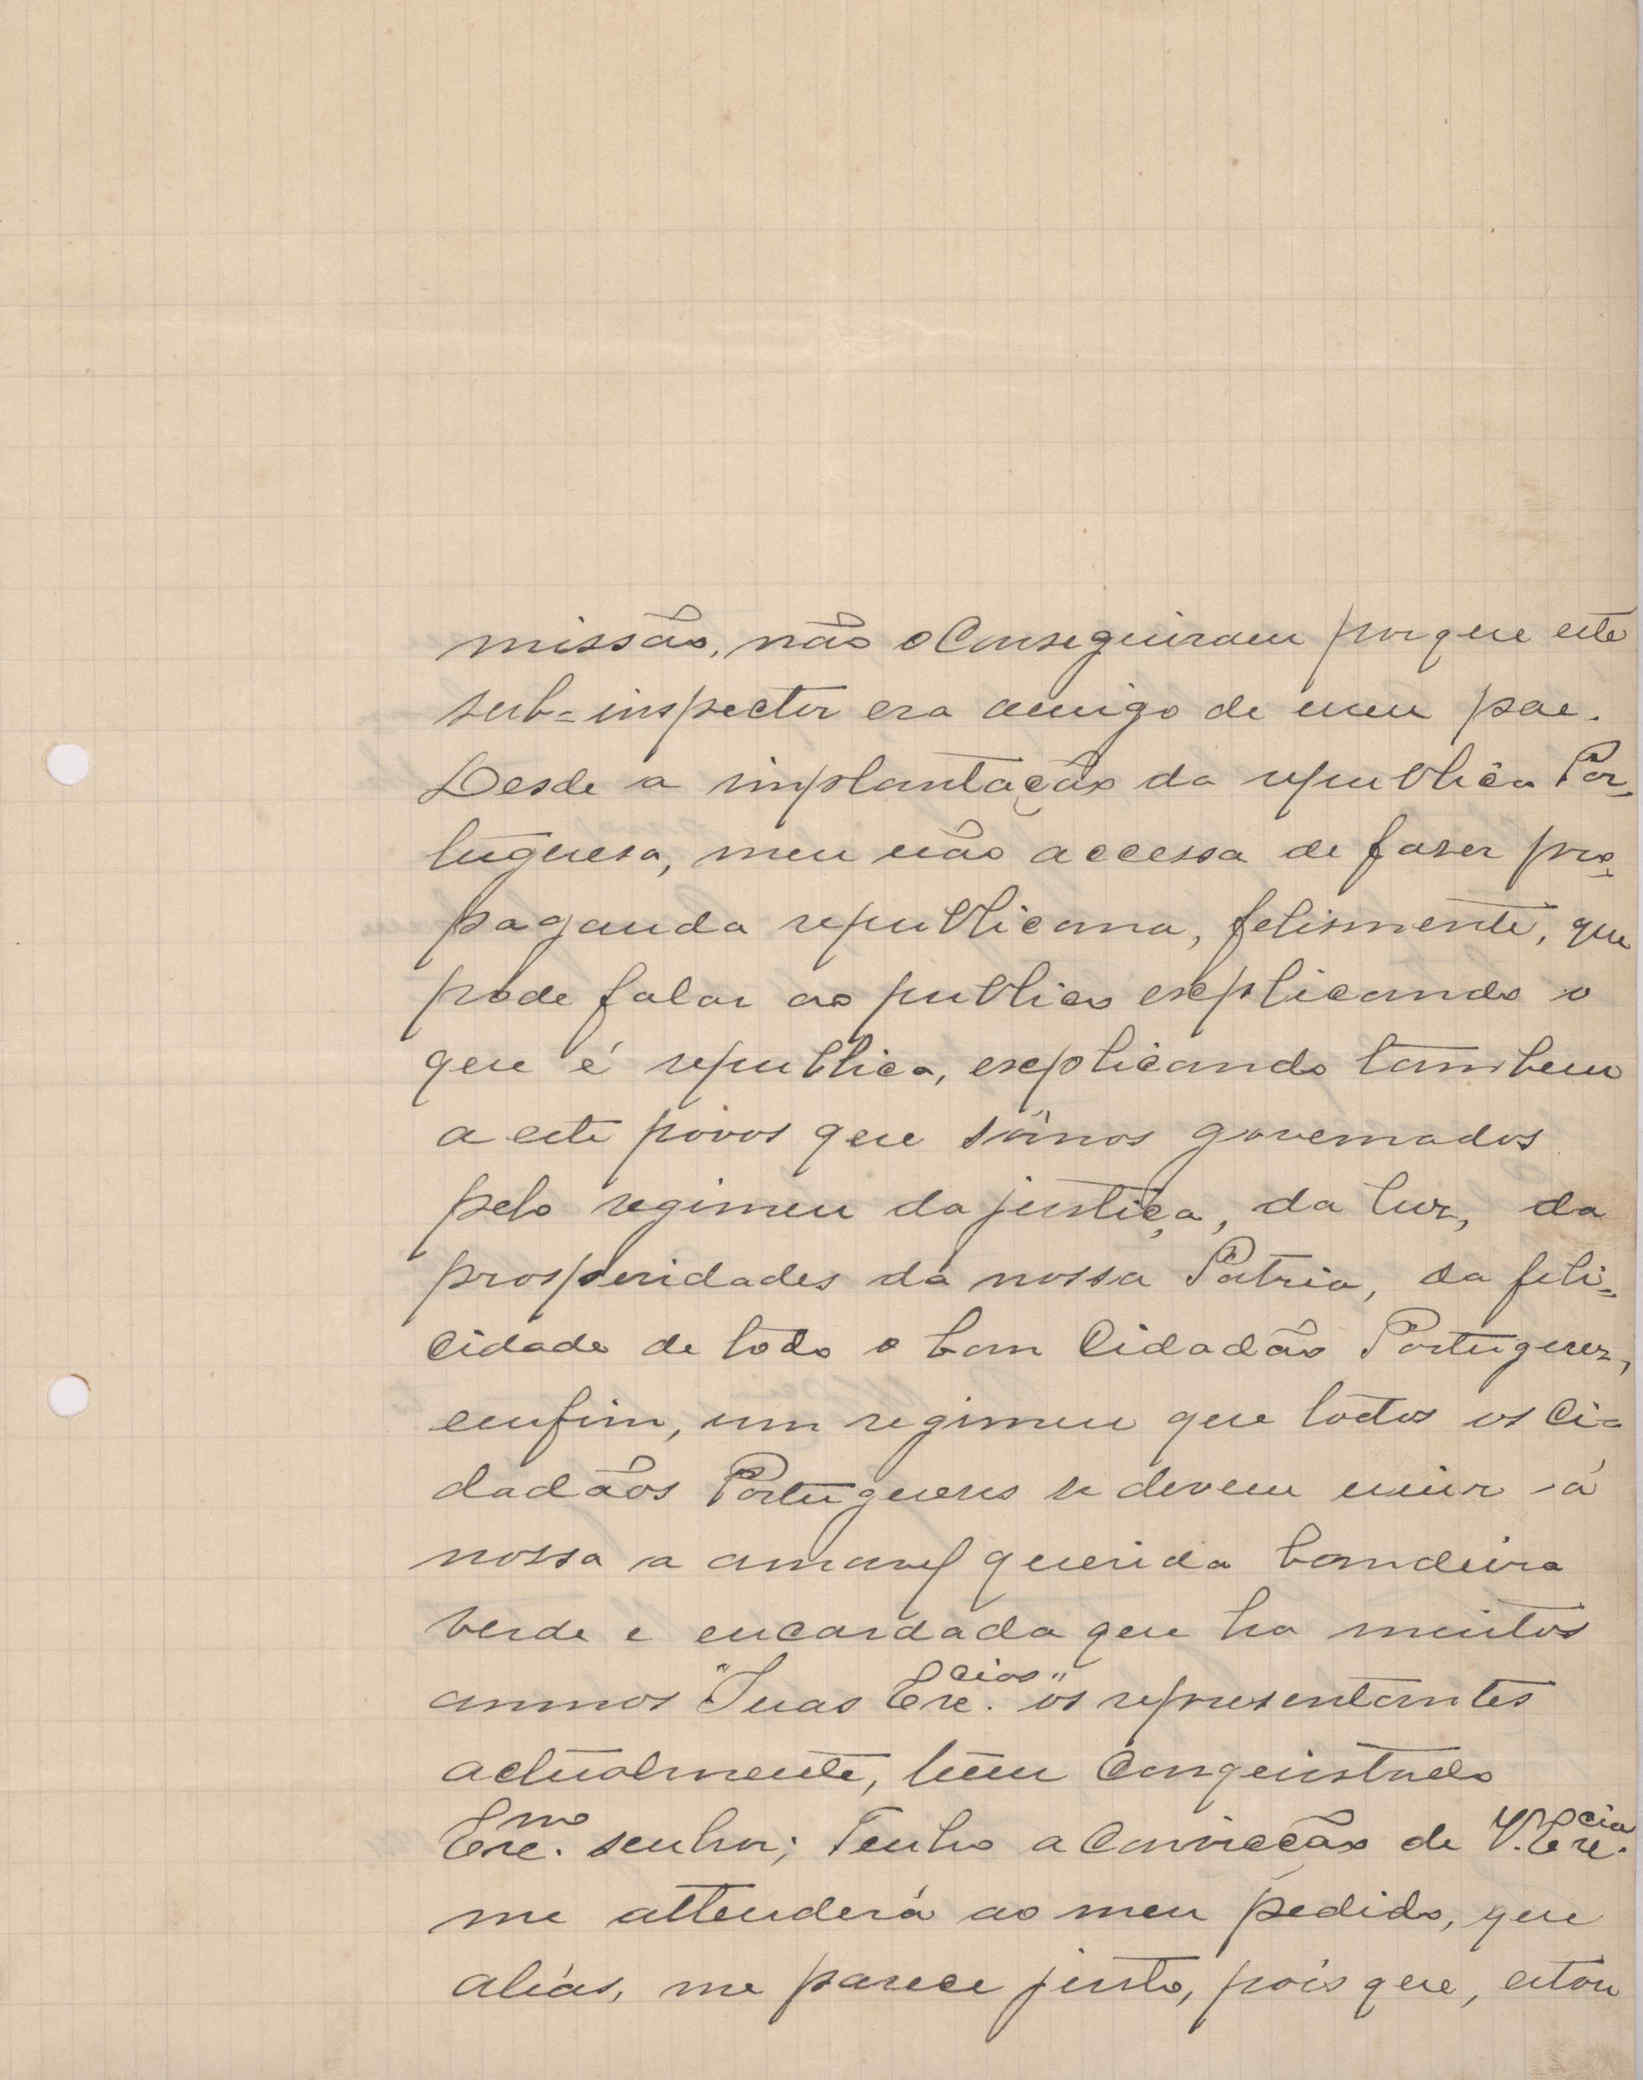 missão, não o conseguiram porque este
sub=inspector era amigo de meu pae.
Desde a implantação da republica Por-
tuguesa, meu não accessa de faser pro-
paganda republicana, felismente, que
pode falar ao publico explicando o
que é republica, explicando tambem
a este povos que sômos governados
pelo regimen da justiça, da luz, da
prosperidades da nossa Patria, da feli-
cidade de todo o bom Cidadão Portuguez,
emfim, um regimen que todos os ci-
dadãos Portuguezes se devem unir á
nossa a querida bandeira
verde e encardada que ha muitos
annos "Suas Exc.cias" os representantes
actualmente, teem conquistado
Exc.mo senhor; Tenho a convicção de V. Exc.cia
me attenderá ao meu pedido, que
aliás, me parece justo, pois que, estou